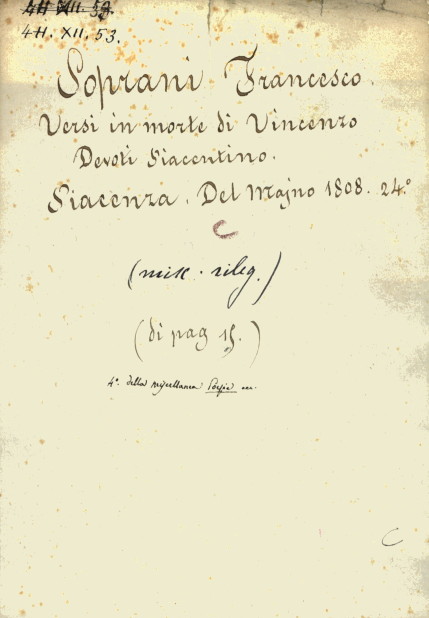 4H XII. 53
4H. XII. 53.
Soprani Francesco.
Versi in morte di Vincenzo
Devoti Piacentino.
Piacenza. Del Majno 1808. 24.°
C
(misc. rileg.)
(di pag 15.)
4°. della miscellanea Poesie
C